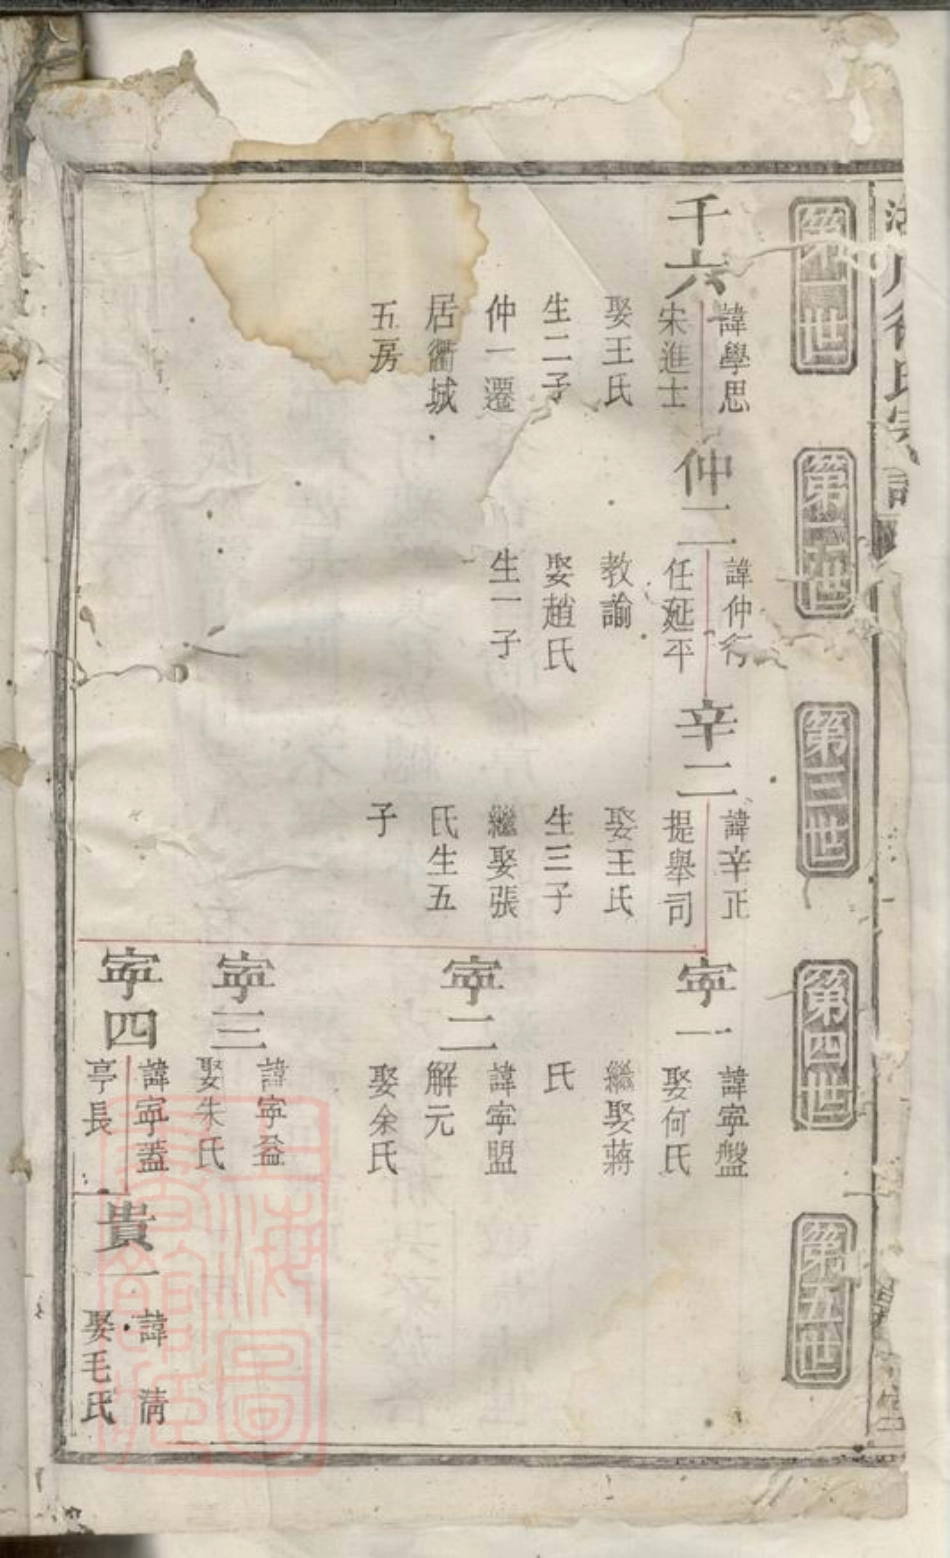 徐氏宗譜
第一世
第二世
第三世
第四世
第五世
千六
諱學思
宋進士
娶王氏
生二子
仲一遷
居衢城
五房
仲二
諱仲行
任延平
教諭
娶趙氏
生一子
辛二
諱辛正
提舉司
娶王氏
生三子
繼娶張
氏生五
子
寧一
諱寧盤
娶何氏
繼娶蔣
氏
寧二
諱寧盟
解元
娶余氏
寧三
諱寧益
娶朱氏
寧四
諱寧蓋
亭長
貴一
諱淸
娶毛氏
上海圖書館藏